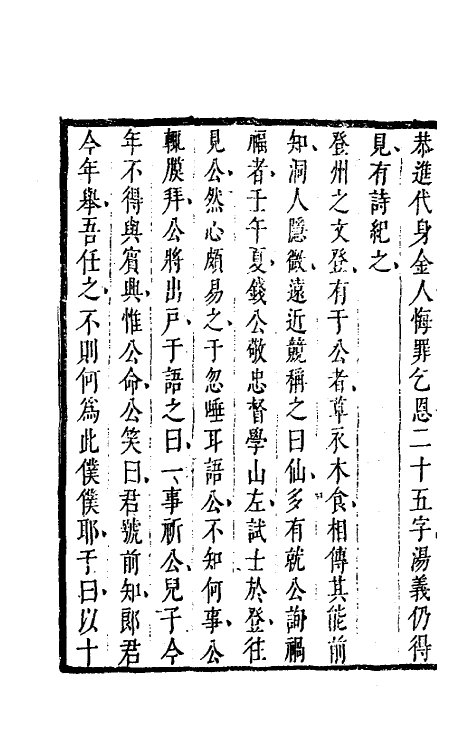 恭進代身金人悔罪乞恩二十五字湯義仍得
見有詩紀之
登州之文登有于公者草衣木食相傳其能前
知洞人隱微遠近競稱之曰仙多有就公詢禍
福者壬午夏錢公敬忠督學山左試士於登往
見公然心頗易之于忽唾耳語公不知何事公
輒膜拜公將出戶于語之曰一事祈公兒子今
年不得與賓興惟公命公笑曰君號前知郎君
今年舉吾任之不則何為此僕僕耶于曰以十